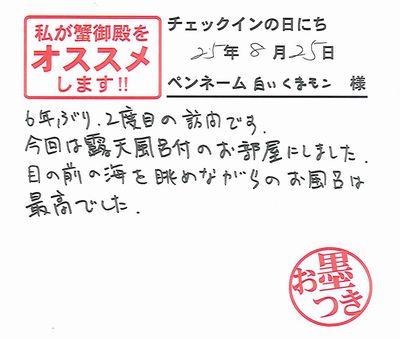 私が蟹御殿を
オススメ
します!!
チェックインの日にち
25年8月25日
ペンネーム 白いくまモン 様
6年ぶり、2度目の訪問です。
今回は露天風呂付のお部屋にしました。
目の前の海を眺めながらのお風呂は
最高でした。
お墨つき